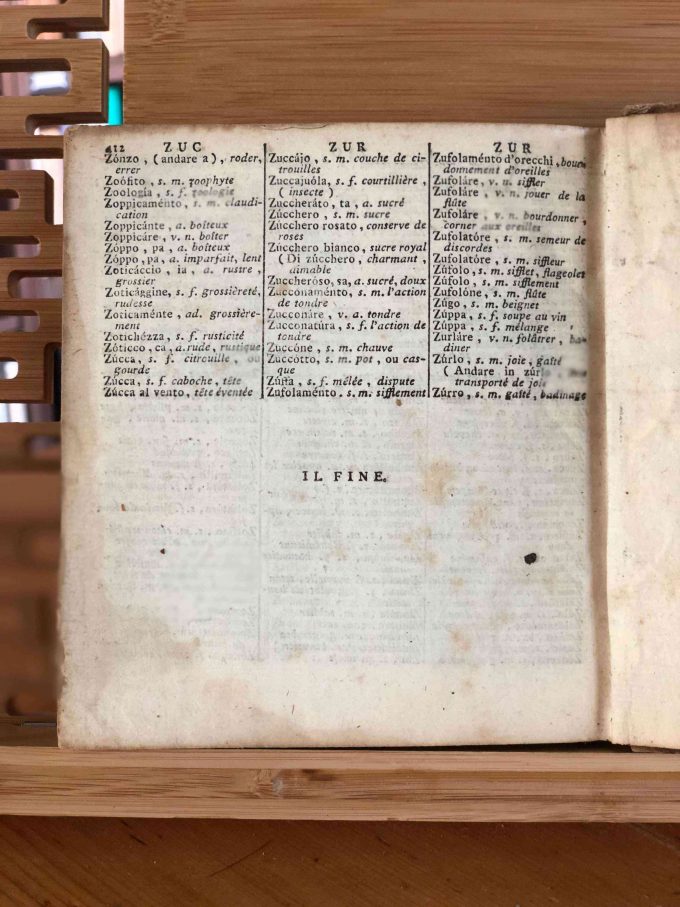 412 ZUC
Zónzo, (andare a), roder,
errer
Zoófito, s. m. zoophyte
Zoología, s. f. zoologie
Zoppicaménto, s. m. claudi-
cation
Zoppicánte, a. boiteux
Zoppicáre, v. n. boîter
Zóppo, pa, a. boiteux
Zóppo, pa, a. imparfait, lent
Zoticáccio, ia, a. rustre,
grossier
Zoticággine, s. f. grossièreté,
rudesse
Zoticaménte, ad. grossière-
ment
Zotichézza, s. f. rusticité
Zótico, ca, a. rude, rustique
Zúcca, s. f. citrouille, ou
gourde
Zúcca, s. f. caboche, tête
Zúcca al vento, tête éventée
ZUR
Zuccájo, s. m. couche de ci-
trouilles
Zuccajuóla, s. f. courtillière,
(insecte)
Zuccheráto, ta, a. sucré
Zúcchero, s. m. sucre
Zúcchero rosato, conserve de
roses
Zúcchero bianco, sucre royal
(Di zúcchero, charmant,
aimable
Zuccheróso, sa, a. sucré, doux
Zucconaménto, s. m. l'action
de tondre
Zucconáre, v. a. tondre
Zucconatúra, s. f. l'action de
tondre
Zuccóne, s. m. chauve
Zuccótto, s. m. pot, ou cas-
que
Zúffa, s. f. mêlée, dispute
Zufolaménto, s. m. sifflement
ZUR
Zufolaménto d'orecchi, bour-
donnement d'oreilles
Zufoláre, v. n. siffler
Zufoláre, v. n. jouer de la
flûte
Zufoláre, v. n. bourdonner,
corner aux oreilles
Zufolatóre, s. m. semeur de
discordes
Zufolatóre, s. m. siffleur
Zúfolo, s. m. sifflet, flageolet
Zúfolo, s. m. sifflement
Zufolóne, s. m. flûte
Zúgo, s. m. beignet
Zúppa, s. f. soupe au vin
Zúppa, s. f. mélange
Zurláre, v. n. folâtrer, ba-
diner
Zúrlo, s. m. joie, gaîté
(Andare in zúrlo,
transporté de joie
Zúrro, s. m. gaîté, badinage
IL FINE.